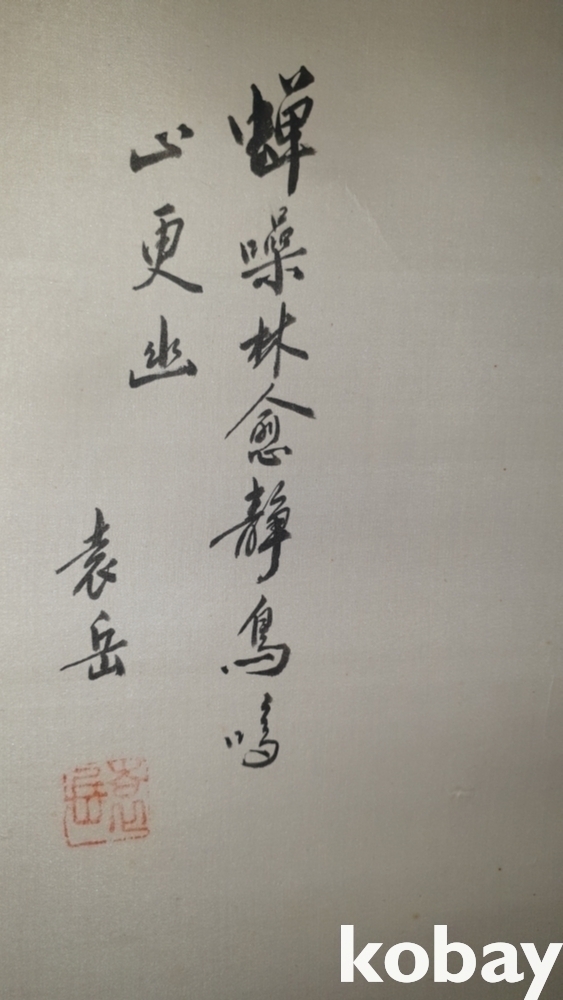 蟬噪林愈靜鳥鳴
山更幽
袁岳
袁岳
kobay